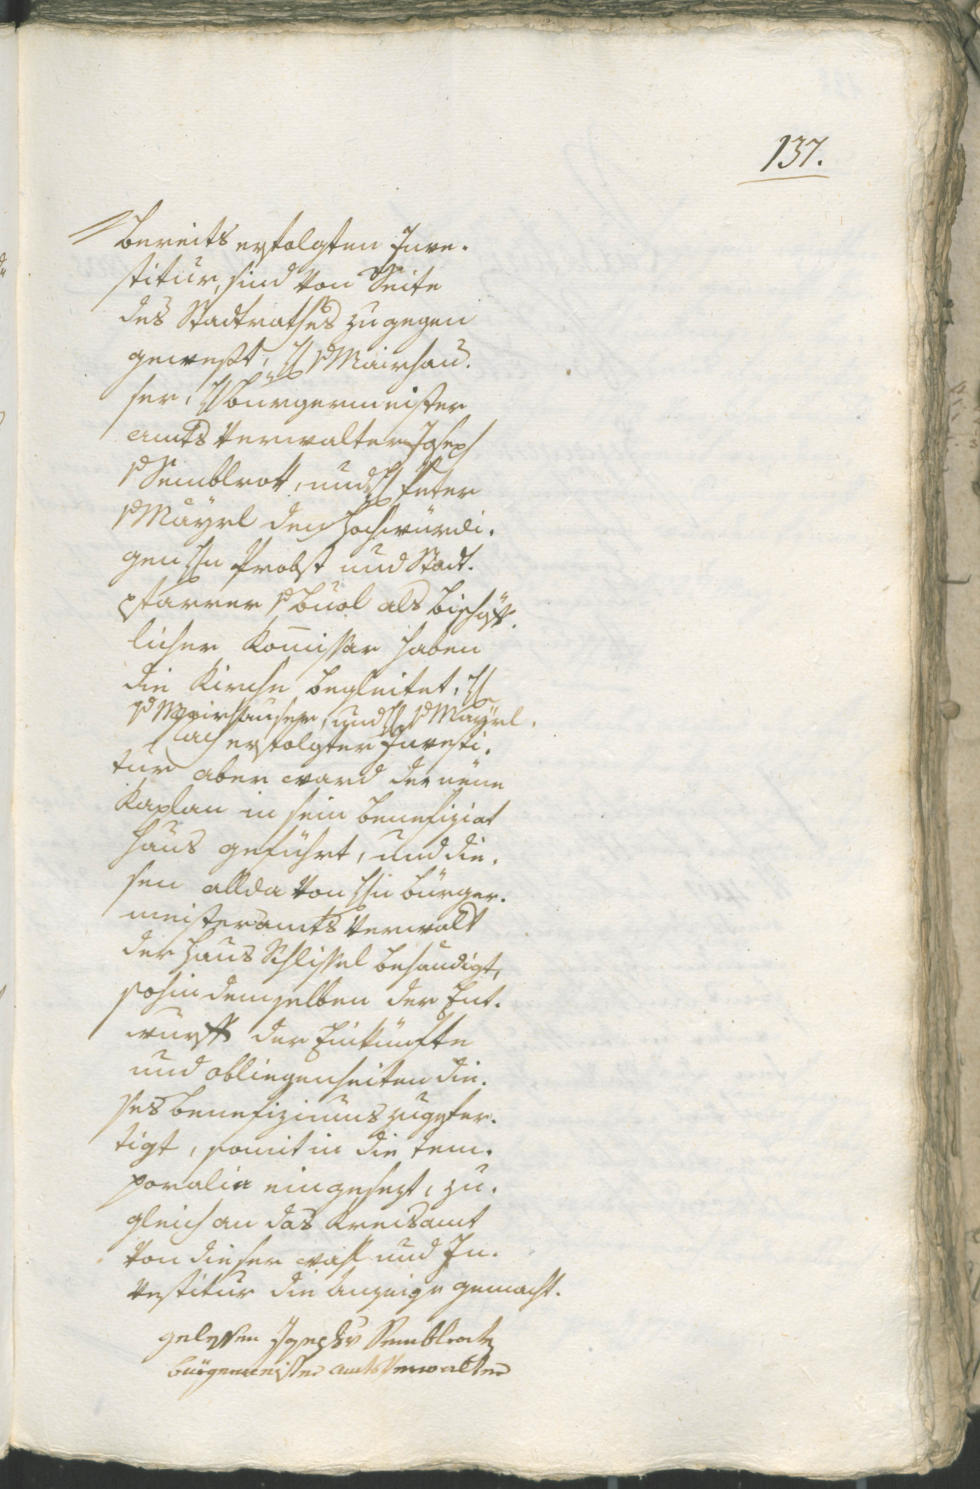 137.
bereits erfolgten Inve-
stitur, sind von Seite
des Stadtrathes zugegen
gewest, H v Mairhau-
ser, H Bürgermeister
amts Verwalter Joseph
v Semblrok, und H Peter
v Mäyrl den Hochwürdi-
gen Hn Probst und Stadt-
pfarrer v Buol als Bischöf-
licher Kom̅issar haben
die Kirche begleitet, H
v Mairhauser, und H v Mayrl.
Nach erfolgter Investi-
tur aber ward der neüe
Kaplan in sein Benefiziat
Haus geführt, und die-
sen allda von Hn Bürger-
meisteramts Verwalt
der Haus Schlissel behändigt,
sohin demselben der Ent-
wurff der Einkünfte
und obliegenheiten die-
ses Benefiziums zugefer-
tigt, somit in die tem-
poralia eingesezt, zu-
gleich an das Kreisamt
von dieser wahl und In-
vestitur die Anzeige gemacht.
gelessen Joseph v Semblrock
bürgermeister amts Verwalter